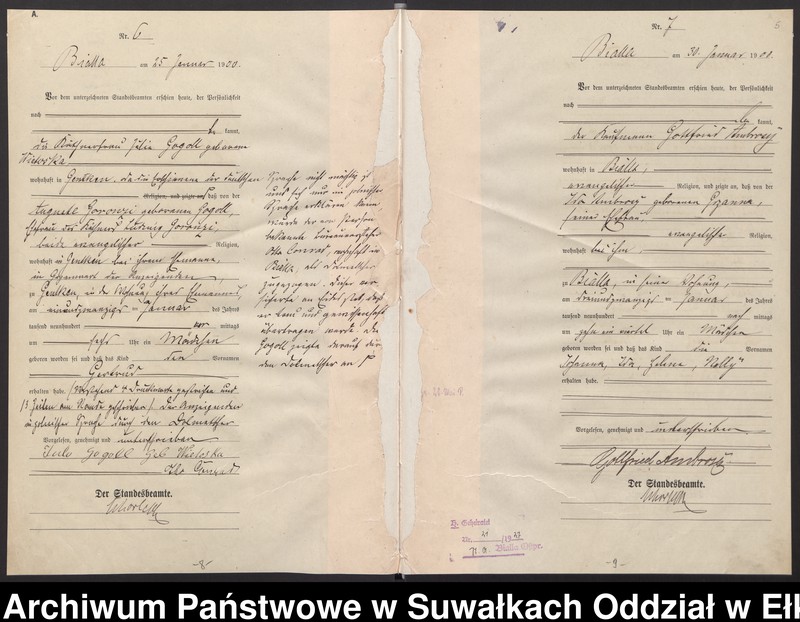 Nr. 6
Bialla am 25 Januar 1900.
Vor dem unterzeichneten Standesbeamten erschien heute, der Persönlichkeit
nach
be kannt,
die Käthnerfrau Julie Gogoll geborene
Wietoska
wohnhaft in Gentken, da die Erschienene der deutschen
Religion, und zeigte an, daß von der
Auguste Goronzi geborenen Gogoll,
Ehefrau des Ludwig Goronzi,
beide evangelischer Religion,
wohnhaft in Gentken bei ihrem Ehemanne,
in Gegenwart der Anzeigenden
zu Gentken, in der Wohnung ihres Ehemannes,
am einundzwanzigsten Januar des Jahres
tausend neunhundert vor mittags
um sechs Uhr ein Mädchen
geboren worden sei und daß das Kind den Vornamen
Gertrud
erhalten habe. (Vorstehend 4 Druckworte gestrichen und
13 Zeilen am Rande geschrieben) Der Anzeigenden
in polnischer Sprache durch den Dolmetscher
Vorgelesen, genehmigt und unterschrieben
Jule Gogoll geb Wietoska
Otto Conrad
Der Standesbeamte.
Sprache nicht mächtig ist
und sich nur in polnischer
Sprache erklären kann
wurde der von Person
bekannte Bureauvorsteher
Otto Conrad, wohnhaft in
Bialla, als Dolmetscher
zugezogen. Dieser ver
sicherte an Eides statt, daß
er treu und gewissenhaft
übertragen werde. Die
Gogoll zeigte darauf durch
den Dolmetscher an
-8-
Nr. 7
5
Bialla am 30. Januar 1900.
Vor dem unterzeichneten Standesbeamten erschien heute, der Persönlichkeit
nach
be kannt,
der Kaufmann Gottfried Ambrosy
wohnhaft in Bialla,
evangelischer Religion, und zeigte an, daß von der
Ida Ambrosy geborenen Czganna,
seiner Ehefrau
evangelischer Religion,
wohnhaft bei ihm
zu Bialla, in seiner Wohnung,
am Januar des Jahres
tausend neunhundert nach mittags
um zehn ein viertel Uhr ein Mädchen
geboren worden sei und daß das Kind die Vornamen
Johanna, Ida, Helene, "Nelly"
erhalten habe.
Vorgelesen, genehmigt und unterschrieben
Gottfried Ambrosy.
Der Standesbeamte.
Nr.
-9-
Archiwum Państwowe w Suwałkach Oddział w Eł